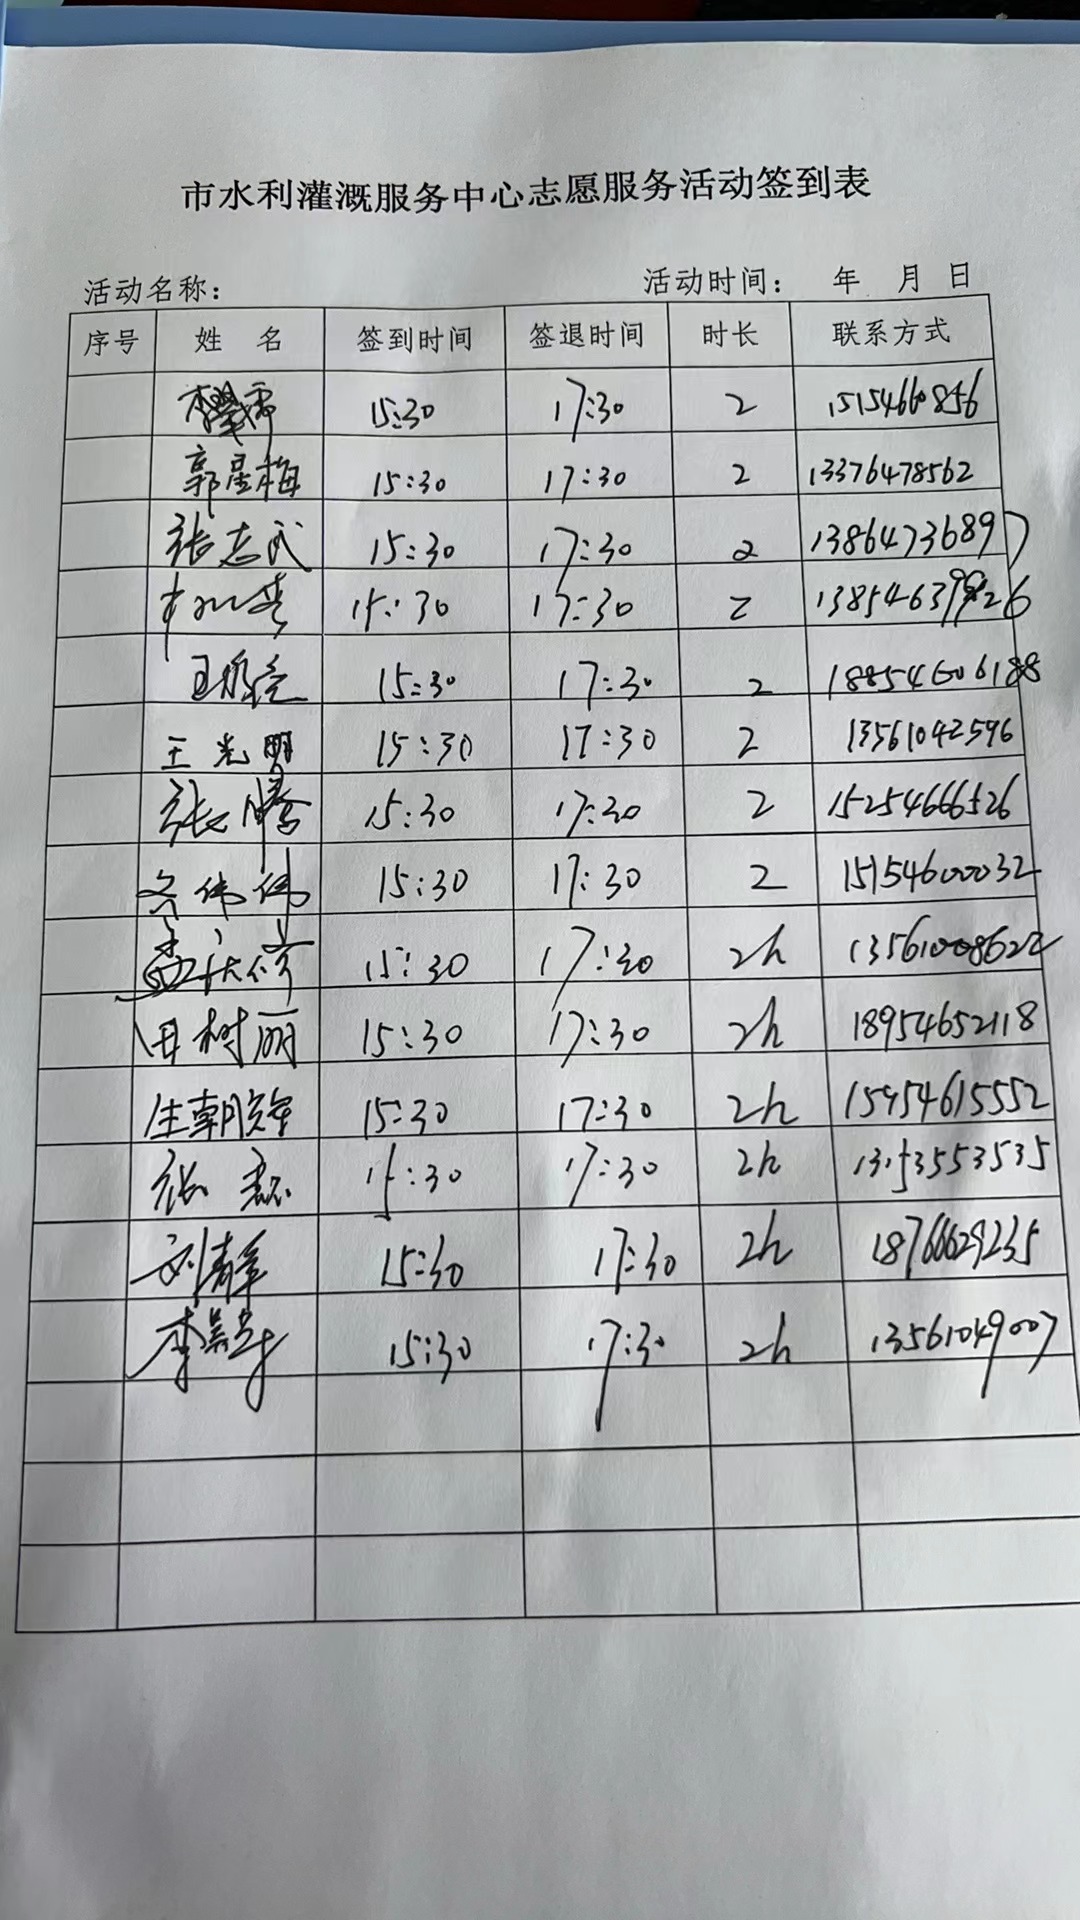 市水利灌溉服务中心志愿服务活动签到表
活动名称： 活动时间： 年 月 日
序号 姓 名 签到时间 签退时间 时长 联系方式
15:30 17:30 2 15154660856
郭星梅 15:30 17:30 2 13376478562
张志武 15:30 17:30 2 13864736897
15:30 17:30 2
15:30 17:30 2
王光明 15:30 17:30 2 13561042596
张腾 15:30 17:30 2 15254666526
伟伟 15:30 17:30 2 15154600032
15:30 17:30 2h 13561008622
田树丽 15:30 17:30 2h 18954652118
生朝 15:30 17:30 2h 15954615552
张 15:30 17:30 2h 13153553535
刘 15:30 17:30 2h 18766629235
李 15:30 17:30 2h 13561049007